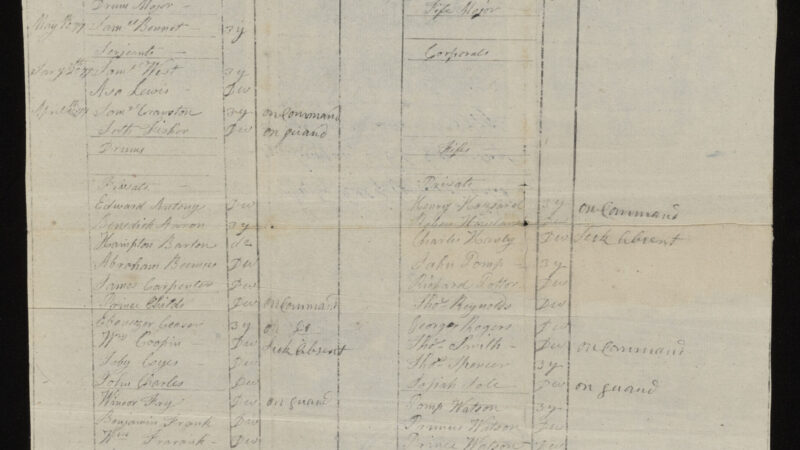 Drum Major
May 13 77 Sam.l Bennet 3y
Serjeants
Sam.l West 3y
Asa Lewis Dw
Sam.l Cranston 3y on Command
Seth Fisher Dw on guard
Drums
Privats
Edward Antony Dw
Benedick Aaron 3y
Hampton Barton
Abraham Dw
James Carpenter Dw
Prince Childs Dw on Command
Ebenezer Ceasar 3y on Do
Wm Coopin Dw Sick Absent
Toby Coyes Dw
John Charles Dw
Winsor Fry Dw on guard
Benjamin Frank Dw
Wm Dw
Fife Major
Corporals
Fifes
Privats
Henry Hazzard 3y on Command
Dw
Charles Dw Sick Absent
Pomp 3y
Richard Potter Dw
Thos. Reynolds Dw
George Rogers Dw
Thos. Smith Dw on Command
Thos. Spencer 3y
Josiah Sole Dw on guard
Pomp Watson 3y
Primus Watson Dw
Prince Watson Dw